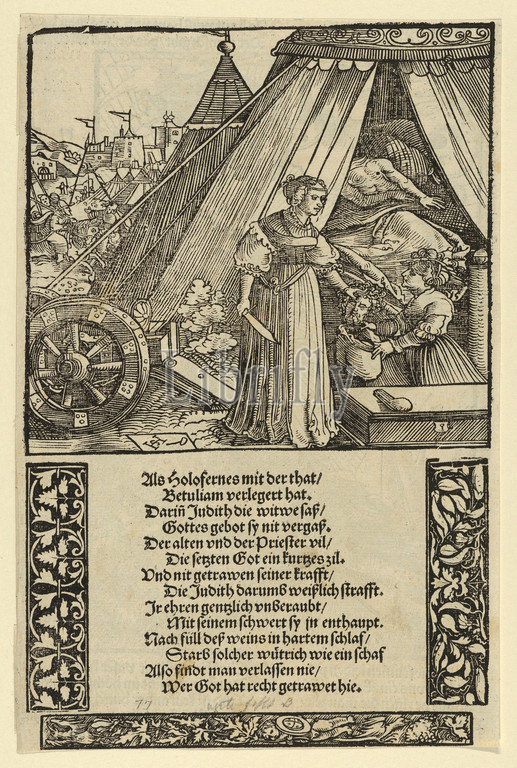 Als Holofernes mit der that/
Betuliam verlegert hat.
Dariñ Judith die witwe saß/
Gottes gebot sy nit vergaß.
Der alten vnd der Priester vil/
Die setzten Got ein kurtzes zil.
Vnd nit getrawen seiner krafft/
Die Judith darumb weißlich strafft.
Ir ehren gentzlich vnberaubt/
Mit seinem schwert sy jn enthaupt.
Nach füll deß weins in hartem schlaf/
Starb solcher wütrich wie ein schaf
Also findt man verlassen nie/
Wer Got hat recht getrawet hie.
77
Librifly